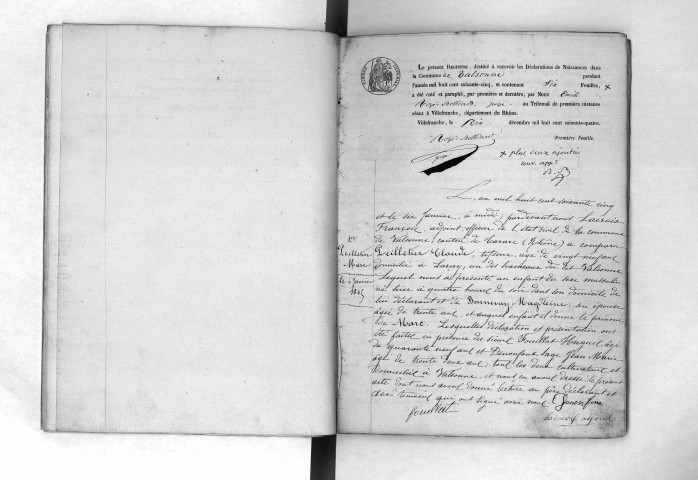 Le présent Registre, destiné à recevoir les Déclarations de Naissances dans
la Commune de Valsonne pendant
l'année mil huit cent soixante-cinq, et contenant Six Feuilles, +
a été coté et paraphé, par première et dernière, par Nous Emil
juge au Tribunal de première instance
séant à Villefranche, département du Rhône.
Villefranche, le Dix décembre mil huit cent soixante-quatre.
Première feuille.
+ plus deux ajoutées
L'an mil huit cent soixante cinq
et le six Janvier, à midi; pardevant nous Lacroix
François, adjoint officier de l'état civil de la commune
de Valsonne, canton de Tarare (Rhône) a comparu
1er
Peilletier
Marc
Peilletier Claude, tisseur, âgé de vingt neuf ans
domicilié à un des hameaux du dit Valsonne
Lequel nous a présenté un enfant du sexe masculin
né hier à quatre heures du soir dans son domicile de
lui déclarant et de Bonnevay son épouse
âgée de trente ans, et auquel enfant il donne le prénom
de Marc. Lesquelles déclaration et présentation ont
été faites en présence des sieurs Fouillat âgé
de quarante neuf ans et Jean Marie
âgé de trente deux ans; tous les deux cultivateurs et
domiciliés à Valsonne, et nous en avons dressé le présent
acte dont nous avons donné lecture au père déclarant et
aux témoins qui ont signé avec nous.
fouillat
Lacroix adjoint